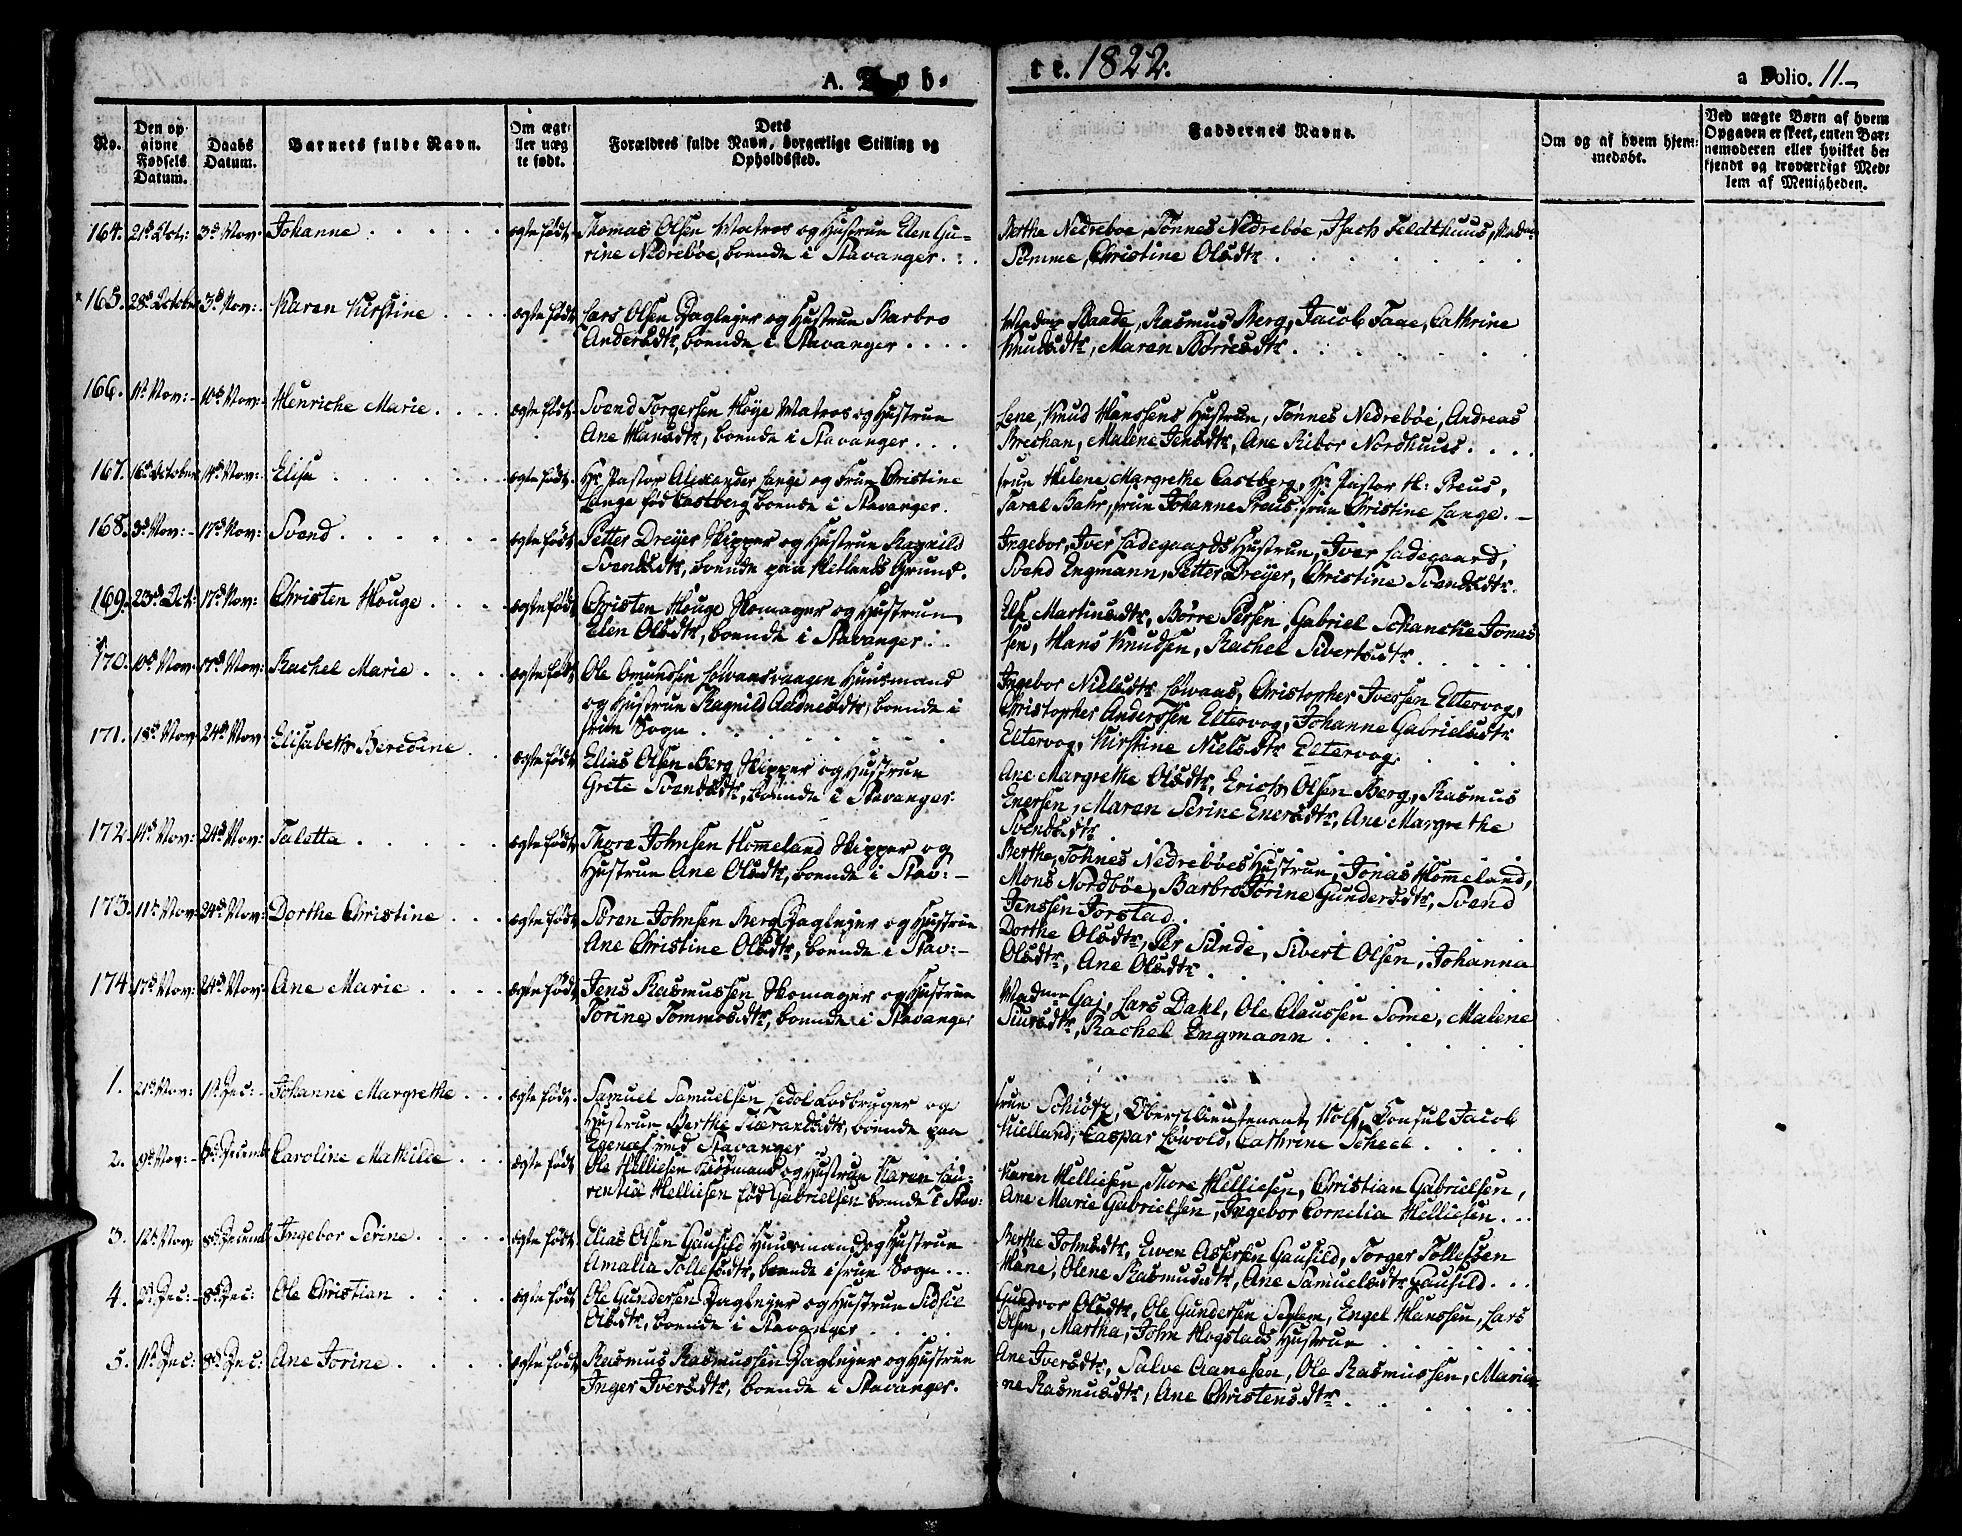 A. Døb-
te. 1822.
a Folio. 11.-
No.
Den op-
givne
Fødsels
Datum.
Daabs
Datum.
Barnets fulde Navn.
Om ægte
eller uæg-
te født.
Dets
Forældres fulde Navn, borgerlige Stilling og
Opholdssted.
Faddernes Navne.
Om og af hvem hjem-
medøbt.
Ved uægte Børn af hvem
Opgaven er skeet, enten Bar-
nemoderen eller hvilket be-
kjendt og troværdigt Med-
lem af Menigheden.
164. 21d Oct: 3d Nov: Johanne ægte født. Thomas Olsen Matros og Hustrue Elen Gu-
rine Nedrebøe, boende i Stavanger.
Berthe Nedrebøe, Tønnes Nedrebøe, Isach Feldthuus, Madme
Sømme, Christine Olsdtr
165. 28d October 3d Nov: Karen Kirstine ægte født Lars Olsen Dagleyer og Hustrue Barbro
Andersdtr, boende i Stavanger
Madme Baade, Rasmus Berg, Jacob Faae, Cathrine
Knudsdtr, Maren Børresdtr.
166. 1d Nov: 10d Nov: Henriche Marie ægte født. Svend Torgersen Høye Matros og Hustrue
Ane Hansdtr, boende i Stavanger
Lene, Knud Hanssens Hustrue, Tønnes Nedrebøe, Andreas
Brechan, Malene Jensdtr, Ane Kibor Nordhuus.
167. 16d October 14d Nov: Elisa ægte født. Hr Pastor Alexander Lange og Frue Christine
Lange fød Castberg boende i Stavanger.
Frue Helene Margrethe Castberg, Hr Pastor H: Preus,
Saral Bahr, Frue Johanne Preus, Frue Christine Lange.-
168. 3d Nov: 17d Nov: Svend ægte født Petter Dreyer Skipper og Hustrue Ragnild
Svendsdtr, boende paa Hetlands Grund.
Ingebor, Iver Ladegaards Hustrue, Iver Ladegaard,
Svend Engmann, Petter Dreyer, Christine Svendsdtr.
169. 23d Oct. 17d Nov: Christen Houge ægte født Christen Houge Skomager og Hustrue
Elen Olsdtr, boende i Stavanger
Else Martinsdtr, Børre Persen, Gabriel Schancke Jonas-
sen, Hans Knudsen, Rachel Sivertsdtr
170. 10d Nov 17d Nov: Rachel Marie ægte født Ole Omundsen Løvaasvangen Huusmand
og Hustrue Ragnild Aadnesdtr, boende i
Frue Sogn
Ingebor Nielsdtr Løvaas, Christopher Iversen Eltervog,
Christopher Anderssen Eltervog, Johanne Gabrielsdtr
Eltervog, Kirstine Nielsdtr Eltervog.
171. 18d Nov 24d Nov Elisabeth Beredine ægte født Elias Olsen Berg Skipper og Hustrue
Grete Svendsdtr, boende i Stavanger.
Ane Margrethe Olsdtr, Erich Olsen Berg, Rasmus
Enersen, Maren Serine Enersdtr, Ane Margrethe
Svendsdtr
172. 14d Nov: 24d Nov: Taletta ægte født Thore Johnsen Homeland Skipper og
Hustrue Ane Olsdtr, boende i Stav:-
Berthe, Tønnes Nedrebøes Hustrue, Jonas Homeland,
Mons Nordbøe, Barbro Torine Gundersdtr, Svend
Jenssen Jorstad.
173. 11d Nov 24d Nov: Dorthe Christine ægte født Søren Johnsen Berg Dagleyer og Hustrue
Ane Christine Olsdtr, boende i Stav:-
Dorthe Olsdtr, Per Sunde, Sivert Olsen, Johanna
Olsdtr, Ane Olsdtr
174. 17d Nov: 24d Nov: Ane Marie ægte født Jens Rasmussen Skomager og Hustrue
Torine Tommosdtr, boende i Stavanger
Madme Gaj, Lars Dahl, Ole Claussen Some, Malene
Siursdtr, Rachel Engmann
1. 21d Nov: 1d Dec: Johanne Margrethe ægte født. Samuel Samuelsen Ledol Lodbruger og
Hustrue Berthe Tiærandsdtr, boende paa
Egenæs Stavanger
Frue Schiøtz, Oberstlieutenant Wolf, Consul Jacob
Kielland, Caspar Løwold, Cathrine Scheel
2. 9d Nov: 6d Decemb Caroline Mathilde ægte født Ole Helliesen Kiøbmand og Hustrue Karen Lau-
rentia Helliesen fød Gabrielsen boende i Stav:
Karen Helliesen, Thore Helliesen, Christian Gabrielsen,
Ane Marie Gabrielsen, Ingebor Cornelia Helliesen
3. 12d Nov 8d Decemb Ingebor Serine ægte født Elias Olsen Gausild Huusmand og Hustrue
Amalia Tollesdtr, boende i Frue Sogn
Berthe Johnsdtr, Even Assersen Gausild, Torger Tollefsen
Hane, Olene Rasmusdtr, Ane Samuelsdtr Gausild
4. 2d Dec: 8d Dec: Ole Christian ægte født Ole Gundersen Dagleyer og Hustrue Sidsel
Olsdtr, boende i Stavanger
Gundvor Olsdtr, Ole Gundersen Seglem, Engel Hanssen, Lars
Olsen, Martha, John Hogstads Hustrue
5. 1d Dec: 8d Dec: Ane Torine ægte født Rasmus Rasmussen Dagleyer og Hustrue
Inger Iversdtr, boende i Stavanger.
Ane Iversdtr, Salve Aanesen, Ole Rasmussen, Maria-
ne Rasmusdtr, Ane Christensdtr